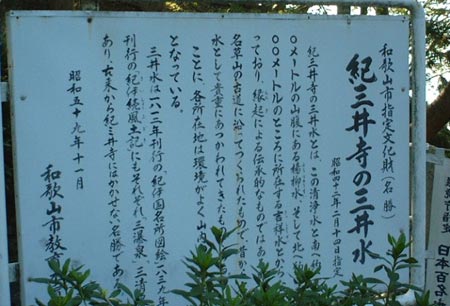 和歌山市指定文化財(名勝)
紀三井寺の三井水
昭和四十二年二月十四日指定
紀三井寺の三井水とは、この清浄水と南へ約
〇〇メートルの山腹にある楊柳水、そして北へ
〇〇メートルのところに所在する吉祥水とか
っており、縁起による伝承的なものではあ
名草山の古道に沿ってつくられたもので昔か
水として貴重にあつかわれてきたも
ことに、各所在地は環境がよく山内
となっている。
三井水は一八一二年刊行の紀伊国名所図絵一八三九年
刊行の紀伊続風土記にもそれぞれ、三瀑泉、三清
あり、古来から紀三井寺にはかかせない名勝であ
昭和五十九年十一月
和歌山市教
日本百名